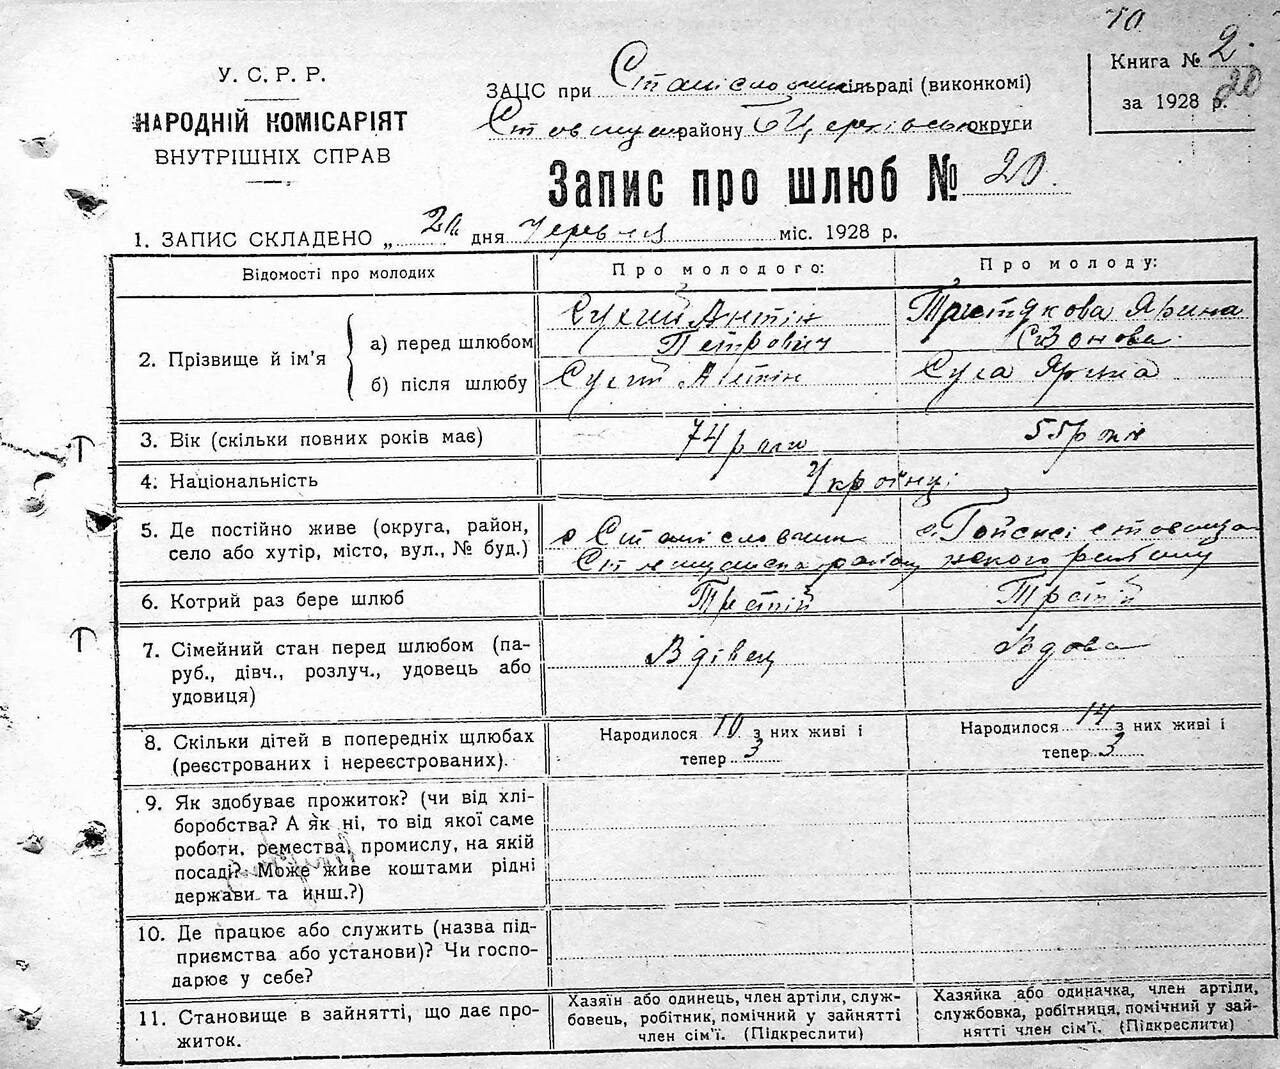 10
У. С. Р. Р.
НАРОДНІЙ КОМІСАРІЯТ
ВНУТРІШНІХ СПРАВ
ЗАЦС при Станіславчик сільраді (виконкомі)
району Б Церківської округи
Книга № 2.
за 1928 р. 20
Запис про шлюб № 20.
1. ЗАПИС СКЛАДЕНО „ дня Червня міс. 1928 р.
Відомості про молодих
Про молодого:
Про молоду:
2. Прізвище й ім'я
а) перед шлюбом
Сухий Антін
Петрович
Третякова Ярина
б) після шлюбу
Сухий Антін
Суха Ярина
3. Вік (скільки повних років має)
74 роки
55 років
4. Національність
Українці
5. Де постійно живе (округа, район,
село або хутір, місто, вул., № буд.)
с Станіславчик
району
ського району
6. Котрий раз бере шлюб
Третій
Третій
7. Сімейний стан перед шлюбом (па-
руб., дівч., розлуч., удовець або
удовиця)
Вдівец
Вдова
8. Скільки дітей в попередніх щлюбах
(реєстрованих і нереєстрованих).
Народилося 10 з них живі і
тепер 3
Народилося 14 з них живі і
тепер 3
9. Як здобуває прожиток? (чи від хлі-
боробства? А як ні, то від якої саме
роботи, ремества, промислу, на якій
посаді? Може живе коштами рідні
держави та инш.?)
10. Де працює або служить (назва під-
приємства або установи)? Чи госпо-
дарює у себе?
11. Становище в зайнятті, що дає про-
житок.
Хазяїн або одинець, член артіли, служ-
бовець, робітник, помічний у зайнятті
член сім'ї. (Підкреслити)
Хазяйка або одиначка, член артіли,
службовка, робітниця, помічний у зай-
нятті член сім'ї. (Підкреслити)